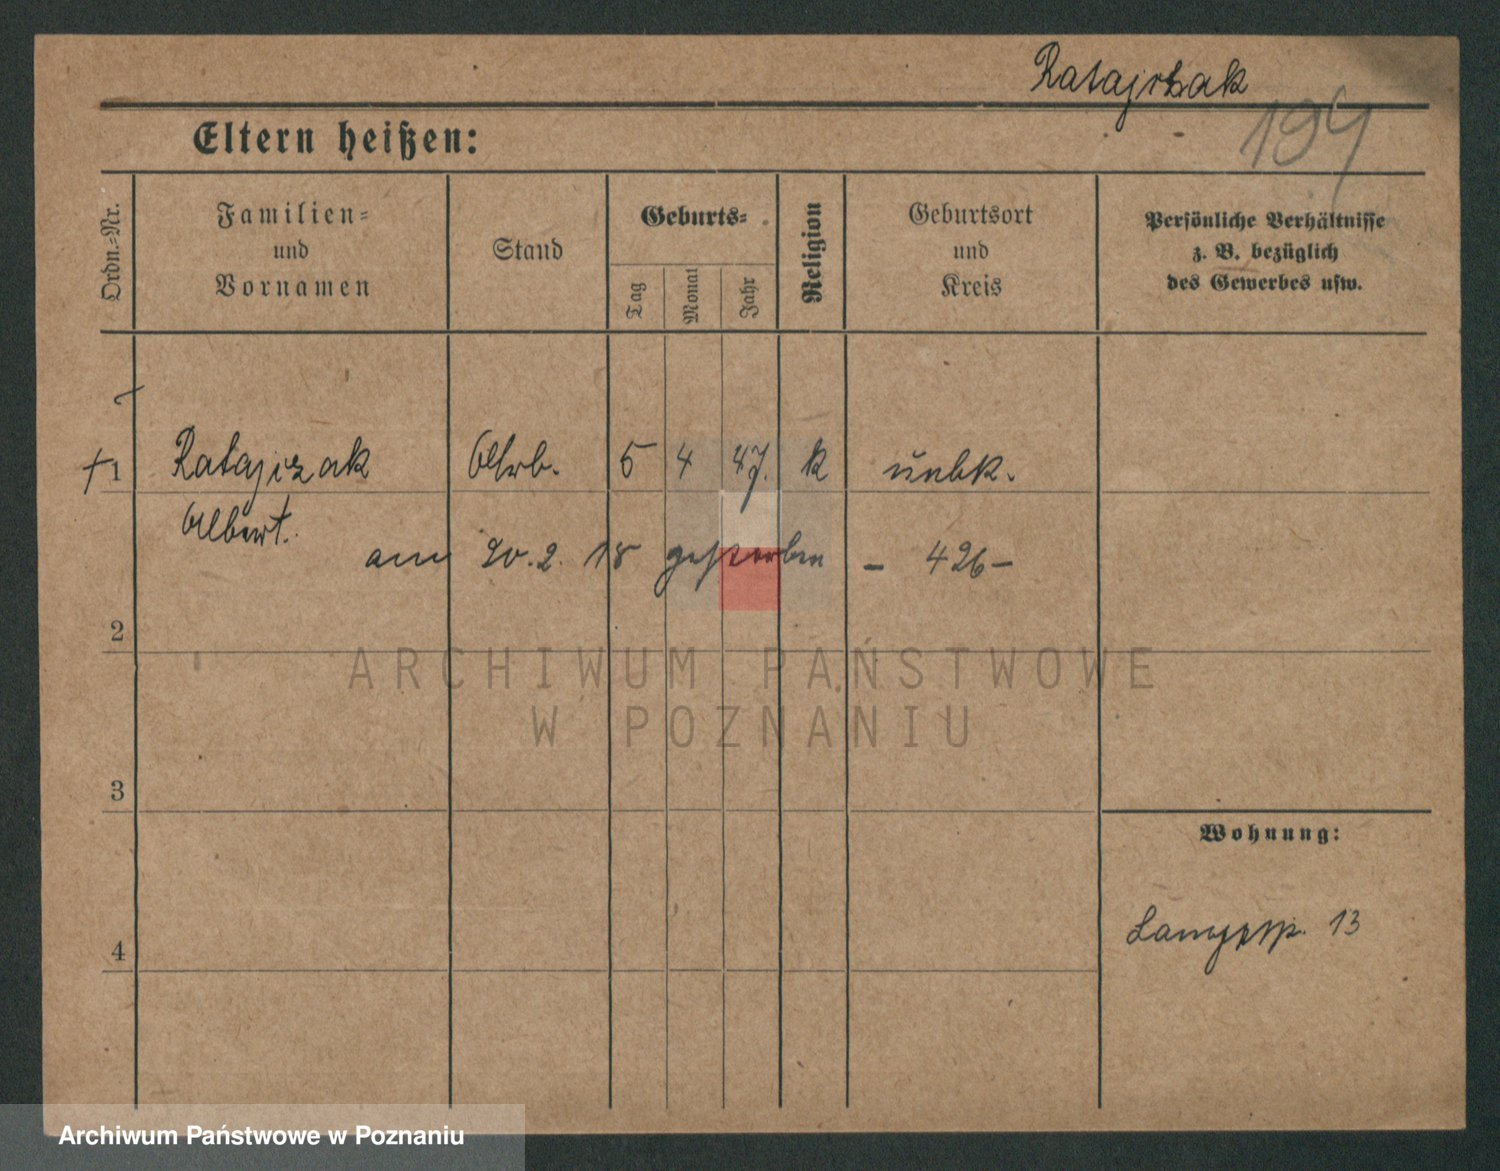 Ratajczak
194
Eltern heißen:
Ordn.=Nr.
Familien=
und
Vornamen
Stand
Geburts=
Tag
Monat
Jahr
Religion
Geburtsort
und
Kreis
Persönliche Verhältnisse
z. B. bezüglich
des Gewerbes usw.
† 1 Ratajczak Arb. 5 4 47. k unbk.
Albert.
am 20. 2. 18 gestorben – 426 –
2
ARCHIWUM PAŃSTWOWE
W POZNANIU
3
Wohnung:
13
4
Archiwum Państwowe w Poznaniu